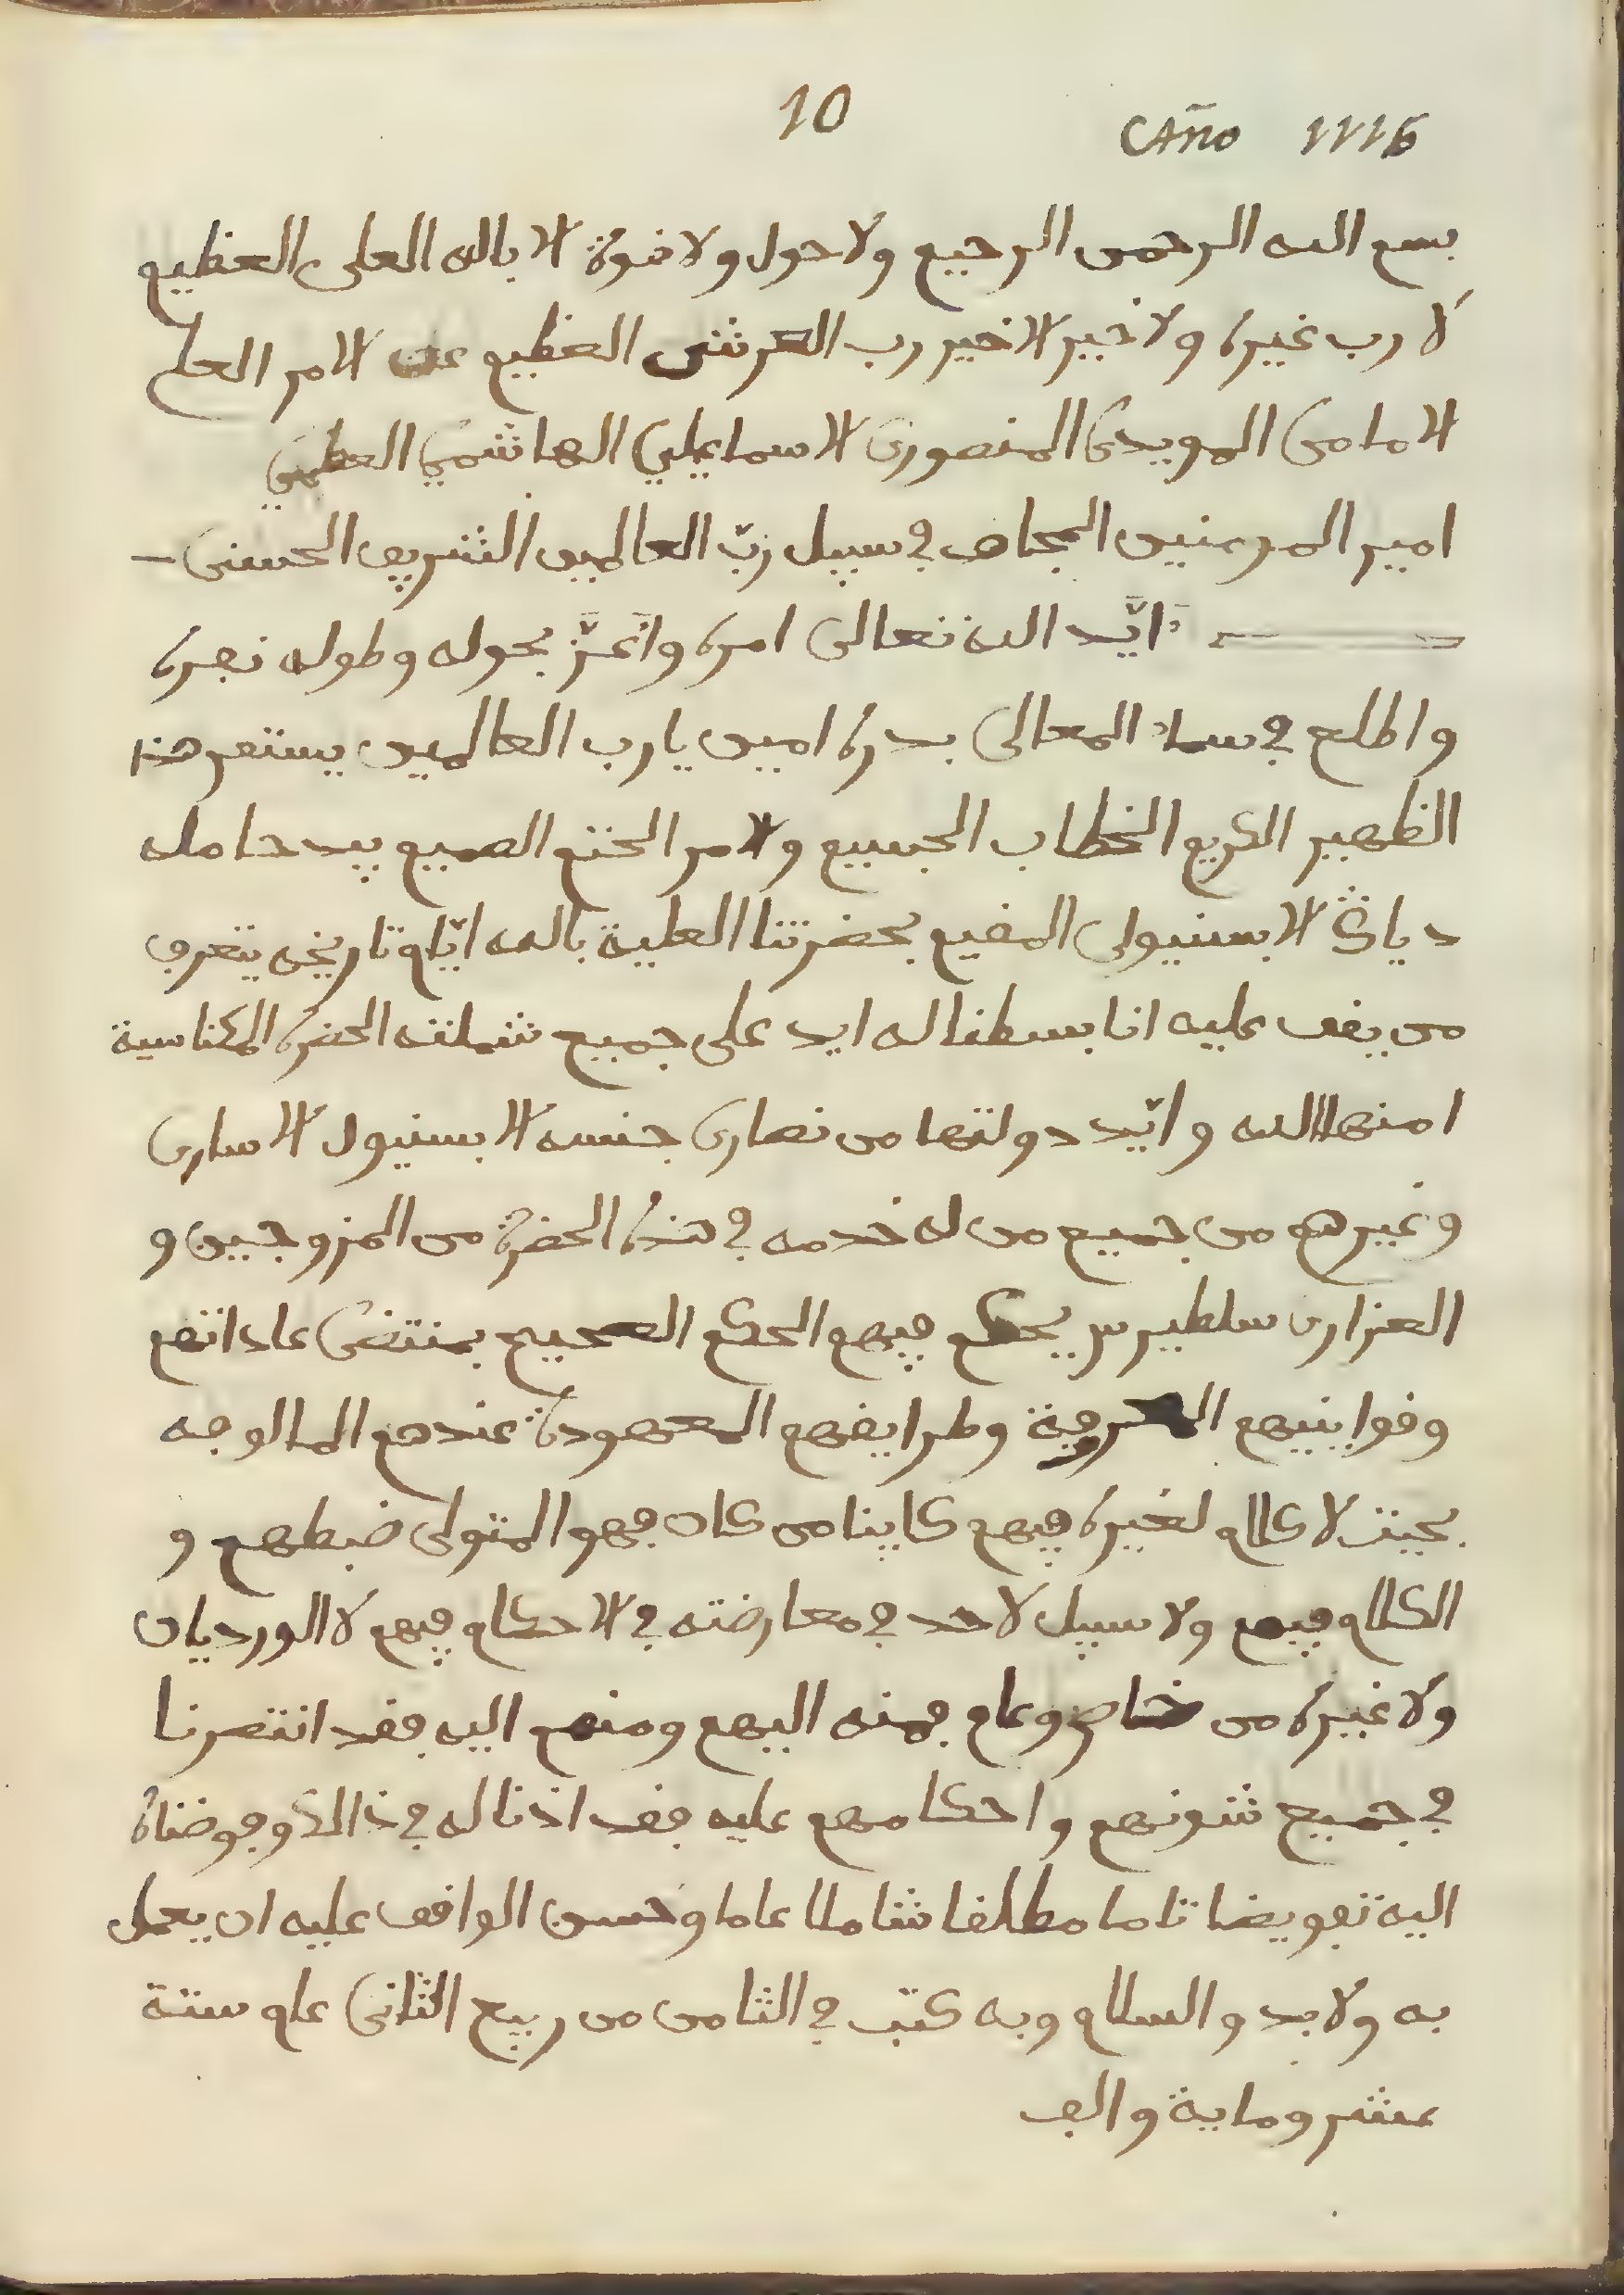 10
Año 1116
بسم الله الرحمن الرحيم ولا حول ولا قوة الا بالله العلى العظيم
لا رب غيره ولا خير الا خير رب العرش العظيم عن الامر العلي
الامامى المويدى المنصورى الاسماعيلي الهاشمي العظيمي
امير المومنين المجاهد في سبيل ربّ العالمين الشريف الحسنى
ايّد الله تعالى امره واعزّ بحوله وطوله نصره
واطلع في سماء المعالى بدره امين يارب العالمين يستقر هذا
الظهير الكريم الخطاب الجسيم والامر الحتم الصميم بيد حامله
دياڨ الاسبنيولى المقيم بحضرتنا العلية بالله ايّام تاريخه يتعرف
من يقف عليه انا بسطنا له ايد على جميع شملته الحضرة المكناسية
امنها الله وايّد دولتها من نصارى جنسه الاسبنيول الاسارى
وغيرهم من جميع من له خدمه في هذه الحضرة من المزوجين و
العزارى سلطيرس يحكم فيهم الحكم الصحيح بمقتضى عاداتهم
وقوانينهم المعروفة وطرايقهم المعهودة عندهم المالوفه
بحيث لا كلام لغيره فيهم كاينا من كان فهو المتولى ضبطهم و
الكلام فيهم ولا سبيل لاحد في معارضته في الاحكام فيهم لا الورديان
ولا غيره من خاص وعام فمنه اليهم ومنهم اليه فقد اقتصرنا
في جميع شونهم واحكامهم عليه فقد اذنا له في ذالك وفوضناه
اليه تفويضا تاما مطلقا شاملا عاما وحسن الواقف عليه ان يعمل
به ولابد والسلام وبه كتب في الثامن من ربيع الثانى عام ستة
عشر وماية والف